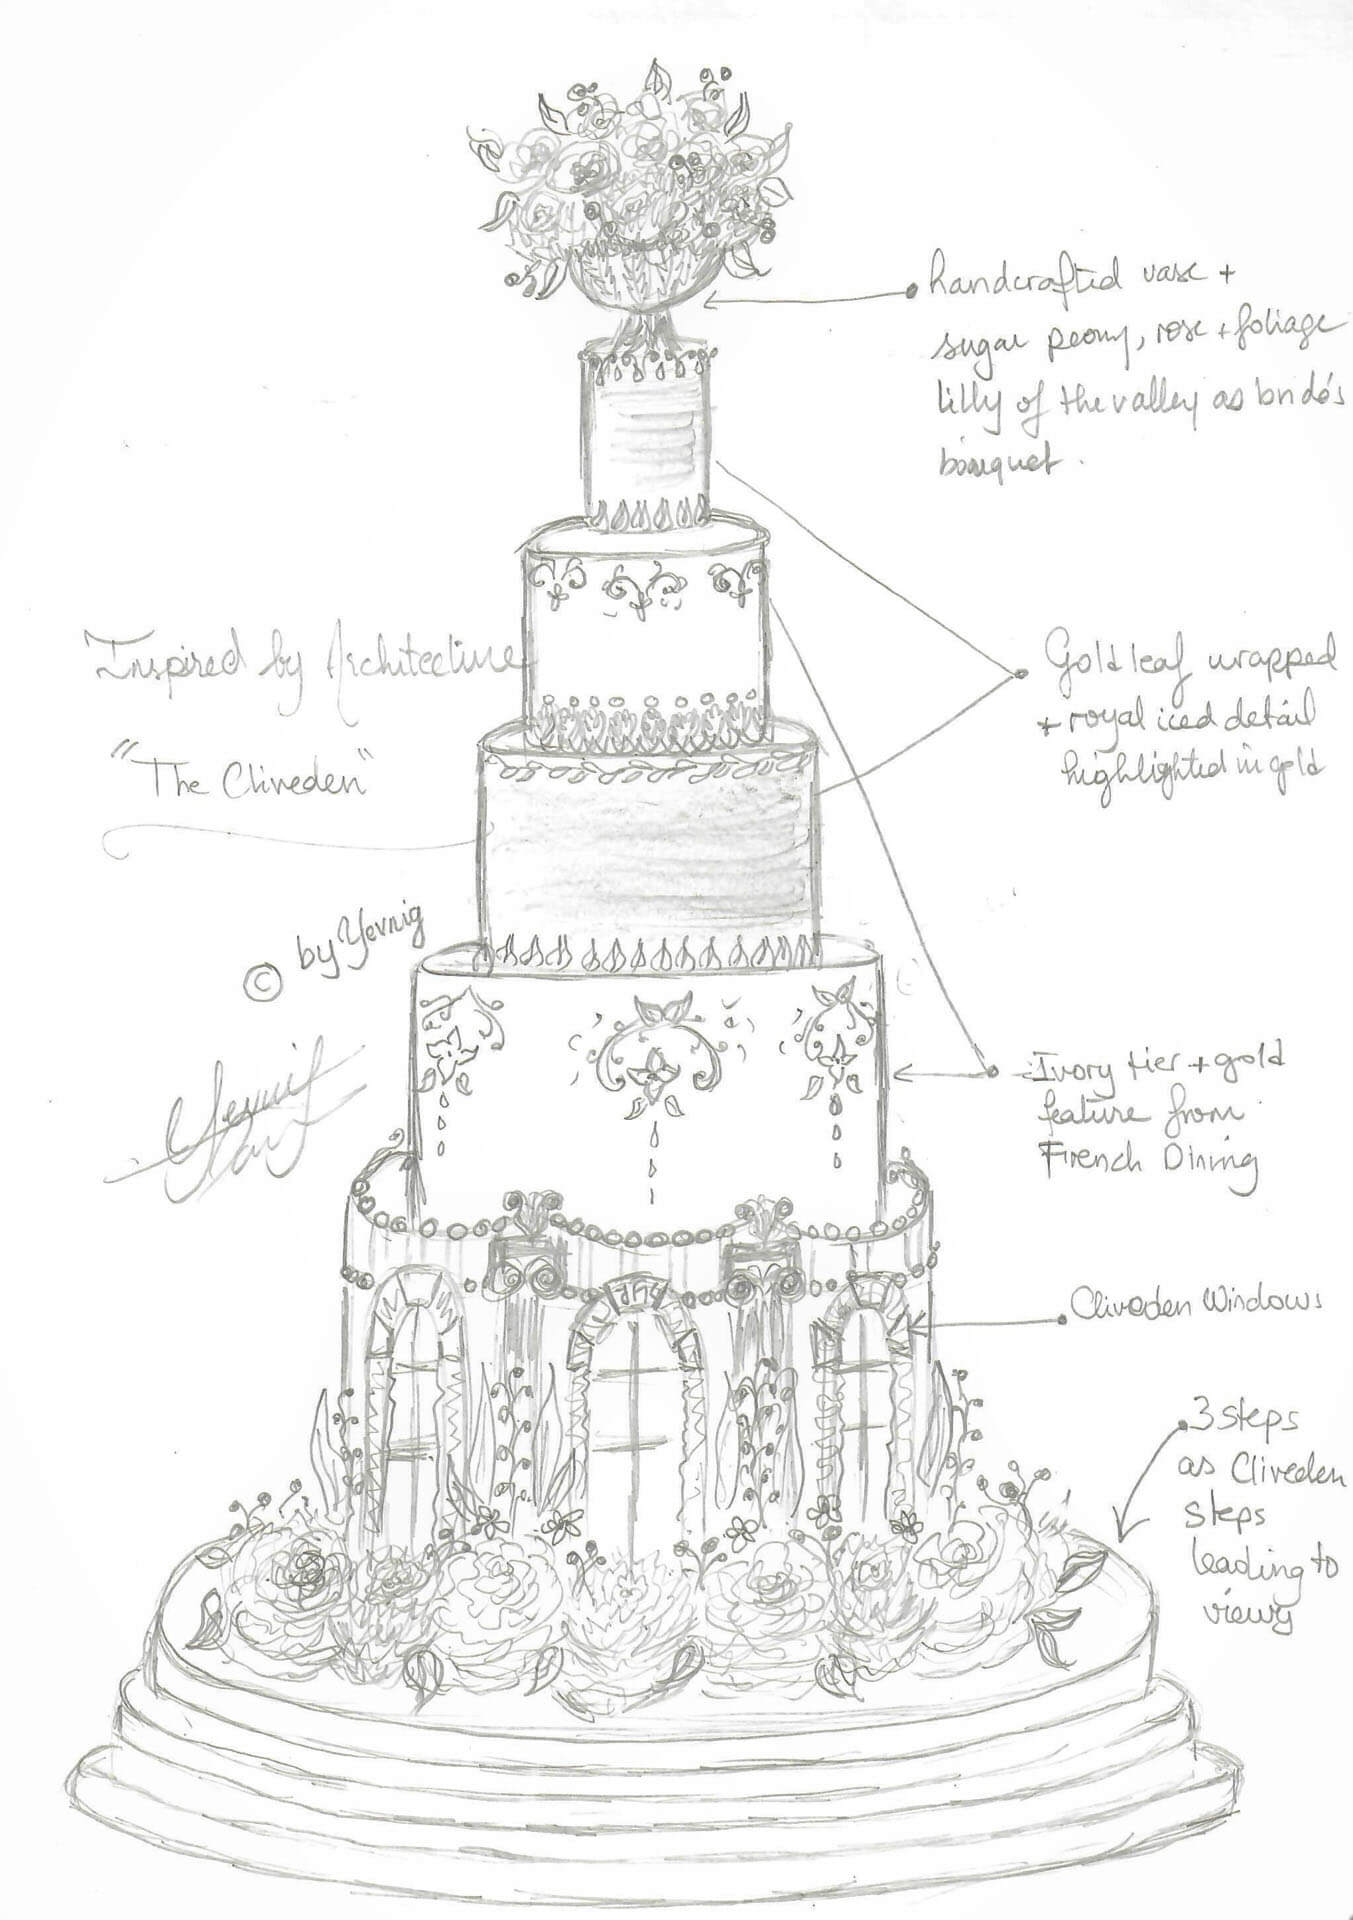 handcrafted vase +
sugar peony, rose + foliage
lilly of the valley as bride's
bouquet.
Inspired by Architecture
"The Cliveden"
Gold leaf wrapped
+ royal iced detail
highlighted in gold
© by Yevnig
Ivory tier + gold
feature from
French Dining
Cliveden Windows
3 steps
as Cliveden
steps
leading to